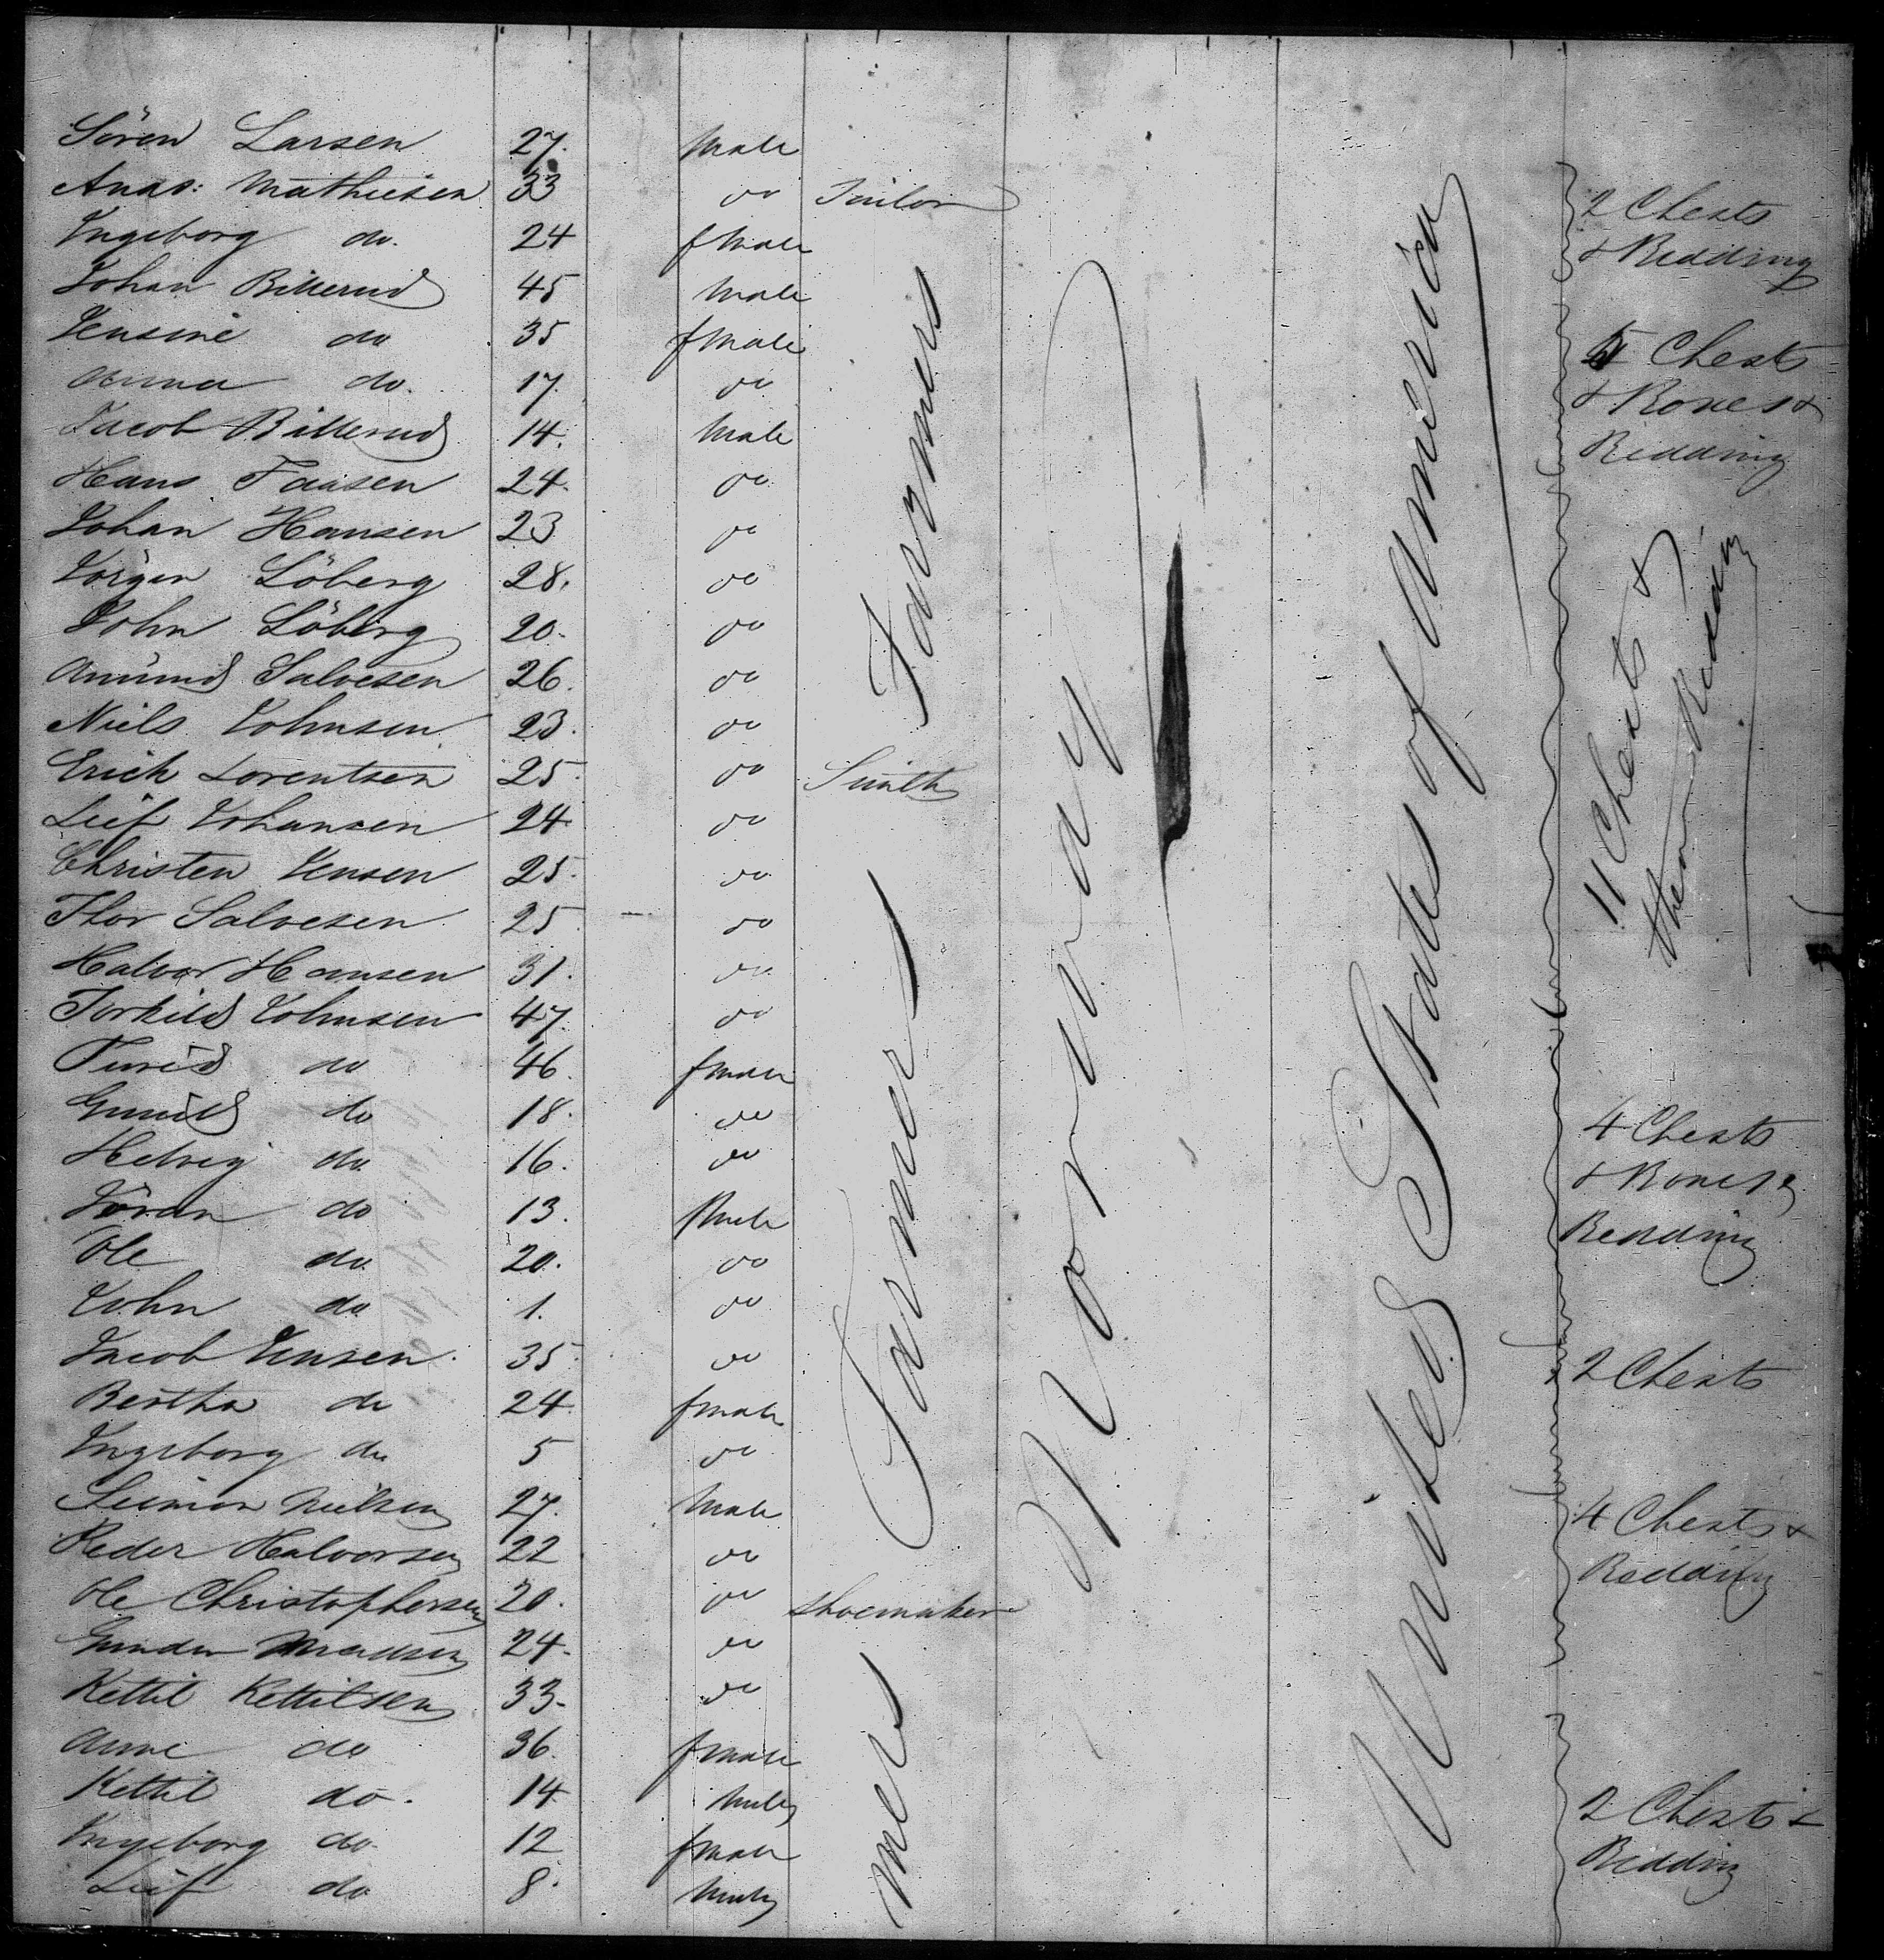 Sören Larsen 27. Male
Anas: Mathiesen 33 do Tailor
Ingeborg do. 24 fmale
Johan Billerud 45 Male
Jensine do 35 fmale
Anna do. 17. do
Jacob Billerud 14. Male
Hans Taasen 24. do
Johan Hansen 23 do
Jörgen Löberg 28. do
John Löberg 20. do
Amund Salvesen 26. do
Niels Johnsen 23. do
Erich Lorentsen 25. do Smith
Leif Johansen 24 do
Christen Jensen 25. do
Thor Salvesen 25 do
Halvor Hansen 31. do
Torkild Johnsen 47. do
Turid do 46. fmale
Gunild do 18. do
Helvig do 16. do
Jöran do 13.
Ole do 20. do
John do 1. do
Jacob Jensen. 35. do
Bertha do 24. fmale
Ingeborg do 5 do
Seimon Nielsen 27. Male
Peder Halvorsen 22 do
Ole Christophersen 20. do Shoemaker
Gunder Madsen 24. do
Kettil Kettilsen 33. do
Anne do 36. fmale
Kettil do. 14 Male
Ingeborg do 12 fmale
Leif do 8. Male
mers Farmers Farmers
Norway
United States of America
2 Chests
& Bedding
5 Chests
& Boxes &
Bedding
11 Chests &
their Bedding
4 Chests
& Boxes &
Bedding
2 Chests
4 Chests &
Bedding
2 Chests &
Bedding